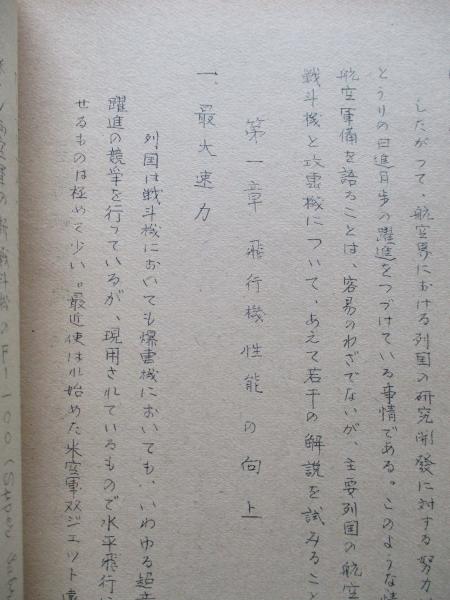 したがって、航空界における列国の研究開発に対する努力は
とうりの日進月歩の躍進をつづけている事情である。このような情
航空軍備を語ることは、容易のわざでないが、主要列国の航空
戦斗機と攻撃機について、あえて若干の解説を試みること
第一章 飛行機性能の向上
一、最大速力
列国は戦斗機においても爆撃機においても、いわゆる超音
躍進の競争を行っているが、現用されているもので水平飛行に
せるものは極めて少い。最近使はれ始めた米空軍双ジェット
戦斗機のF-100(Super